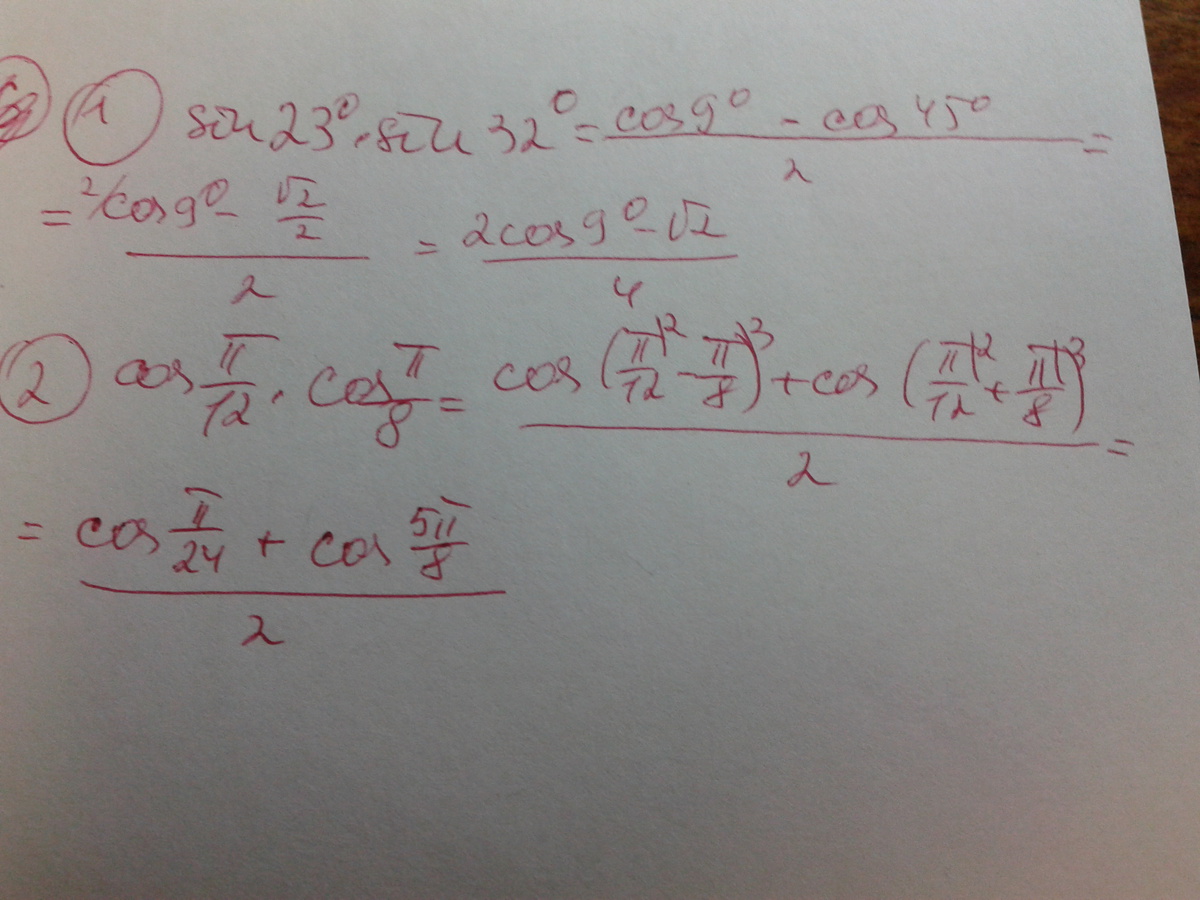 ① sin 23° · sin 32° = (cos 9° - cos 45°)/2 =
= (²⁄cos 9° - √2/2)/2 = (2cos 9° - √2)/4
② cos π/12 · cos π/8 = (cos (π/12|² - π/8|³) + cos (π/12|² + π/8|³))/2 =
= (cos π/24 + cos 5π/8)/2